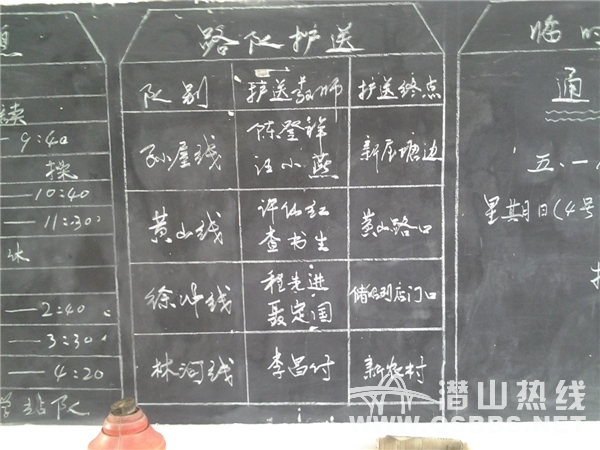 息
读
— 9:40
操
— 10:40
— 11:30
休
— 2:40
— 3:30
— 4:20
学站队
路队护送
队别 护送教师 护送终点
孙屋线 陈登锋 汪小燕 新屋塘边
黄山线 许仙红 查书生 黄山路口
徐冲线 程先进 聂定国 店门口
林河线 李昌付 新农村
临时
通
五.一
星期日(4号
潜山热线
QSBBS.NET